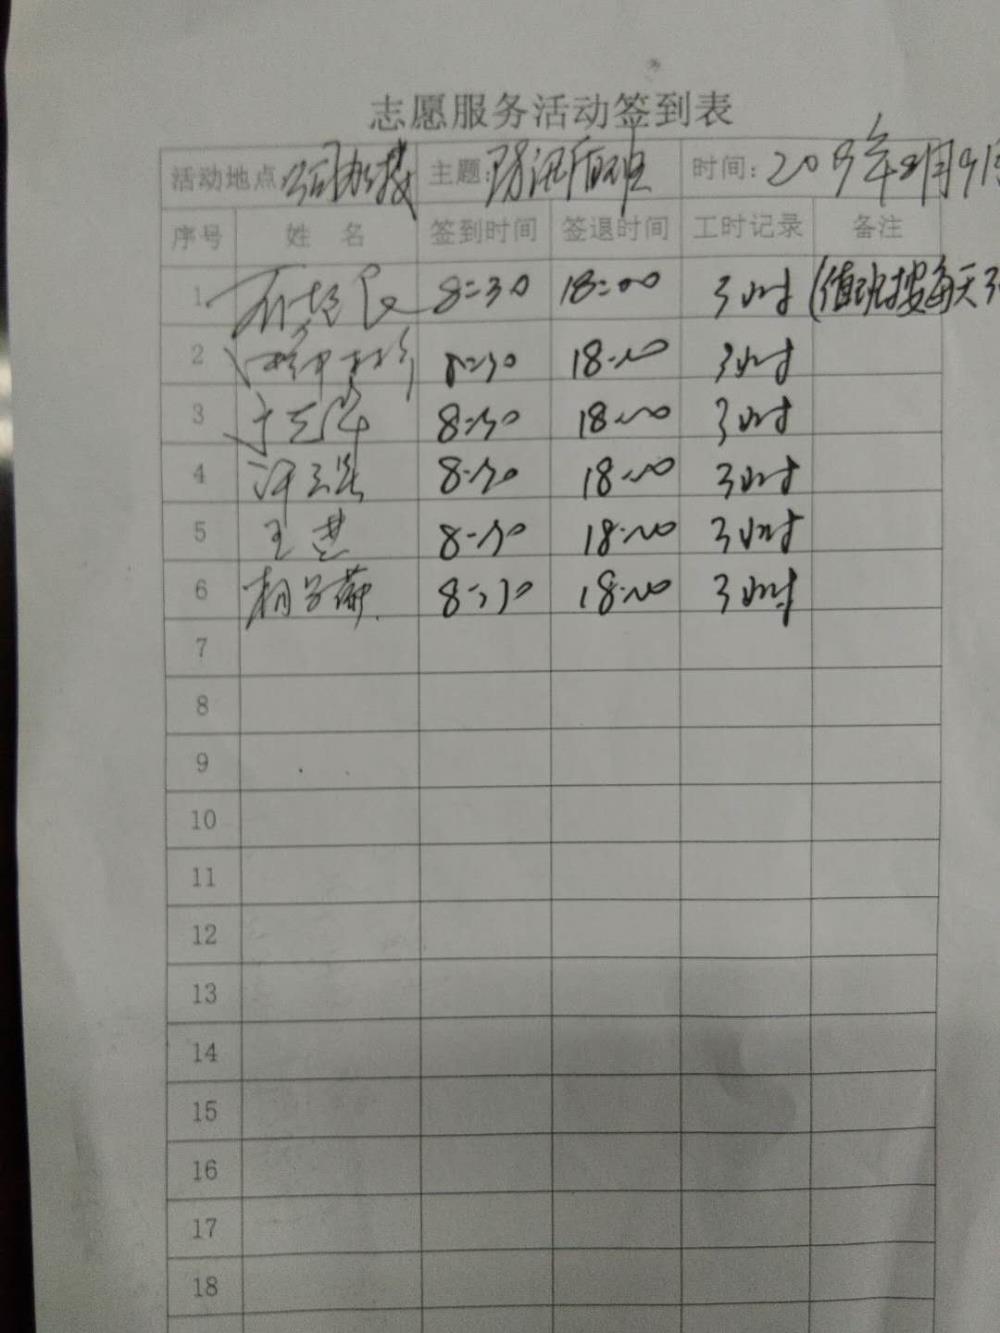 志愿服务活动签到表
活动地点: 公司办楼 主题: 防汛值班 时间: 2019年8月9日
序号 姓 名 签到时间 签退时间 工时记录 备注
1 8:30 18:00 3小时 (值班按每天3
2 8:30 18:00 3小时
3 8:30 18:00 3小时
4 8:30 18:00 3小时
5 王 8:30 18:00 3小时
6 8:30 18:00 3小时
7
8
9
10
11
12
13
14
15
16
17
18